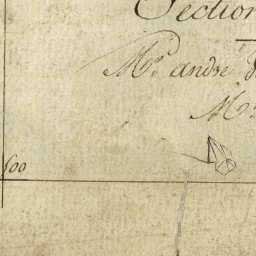 Section
Mr. andre
Mr
500